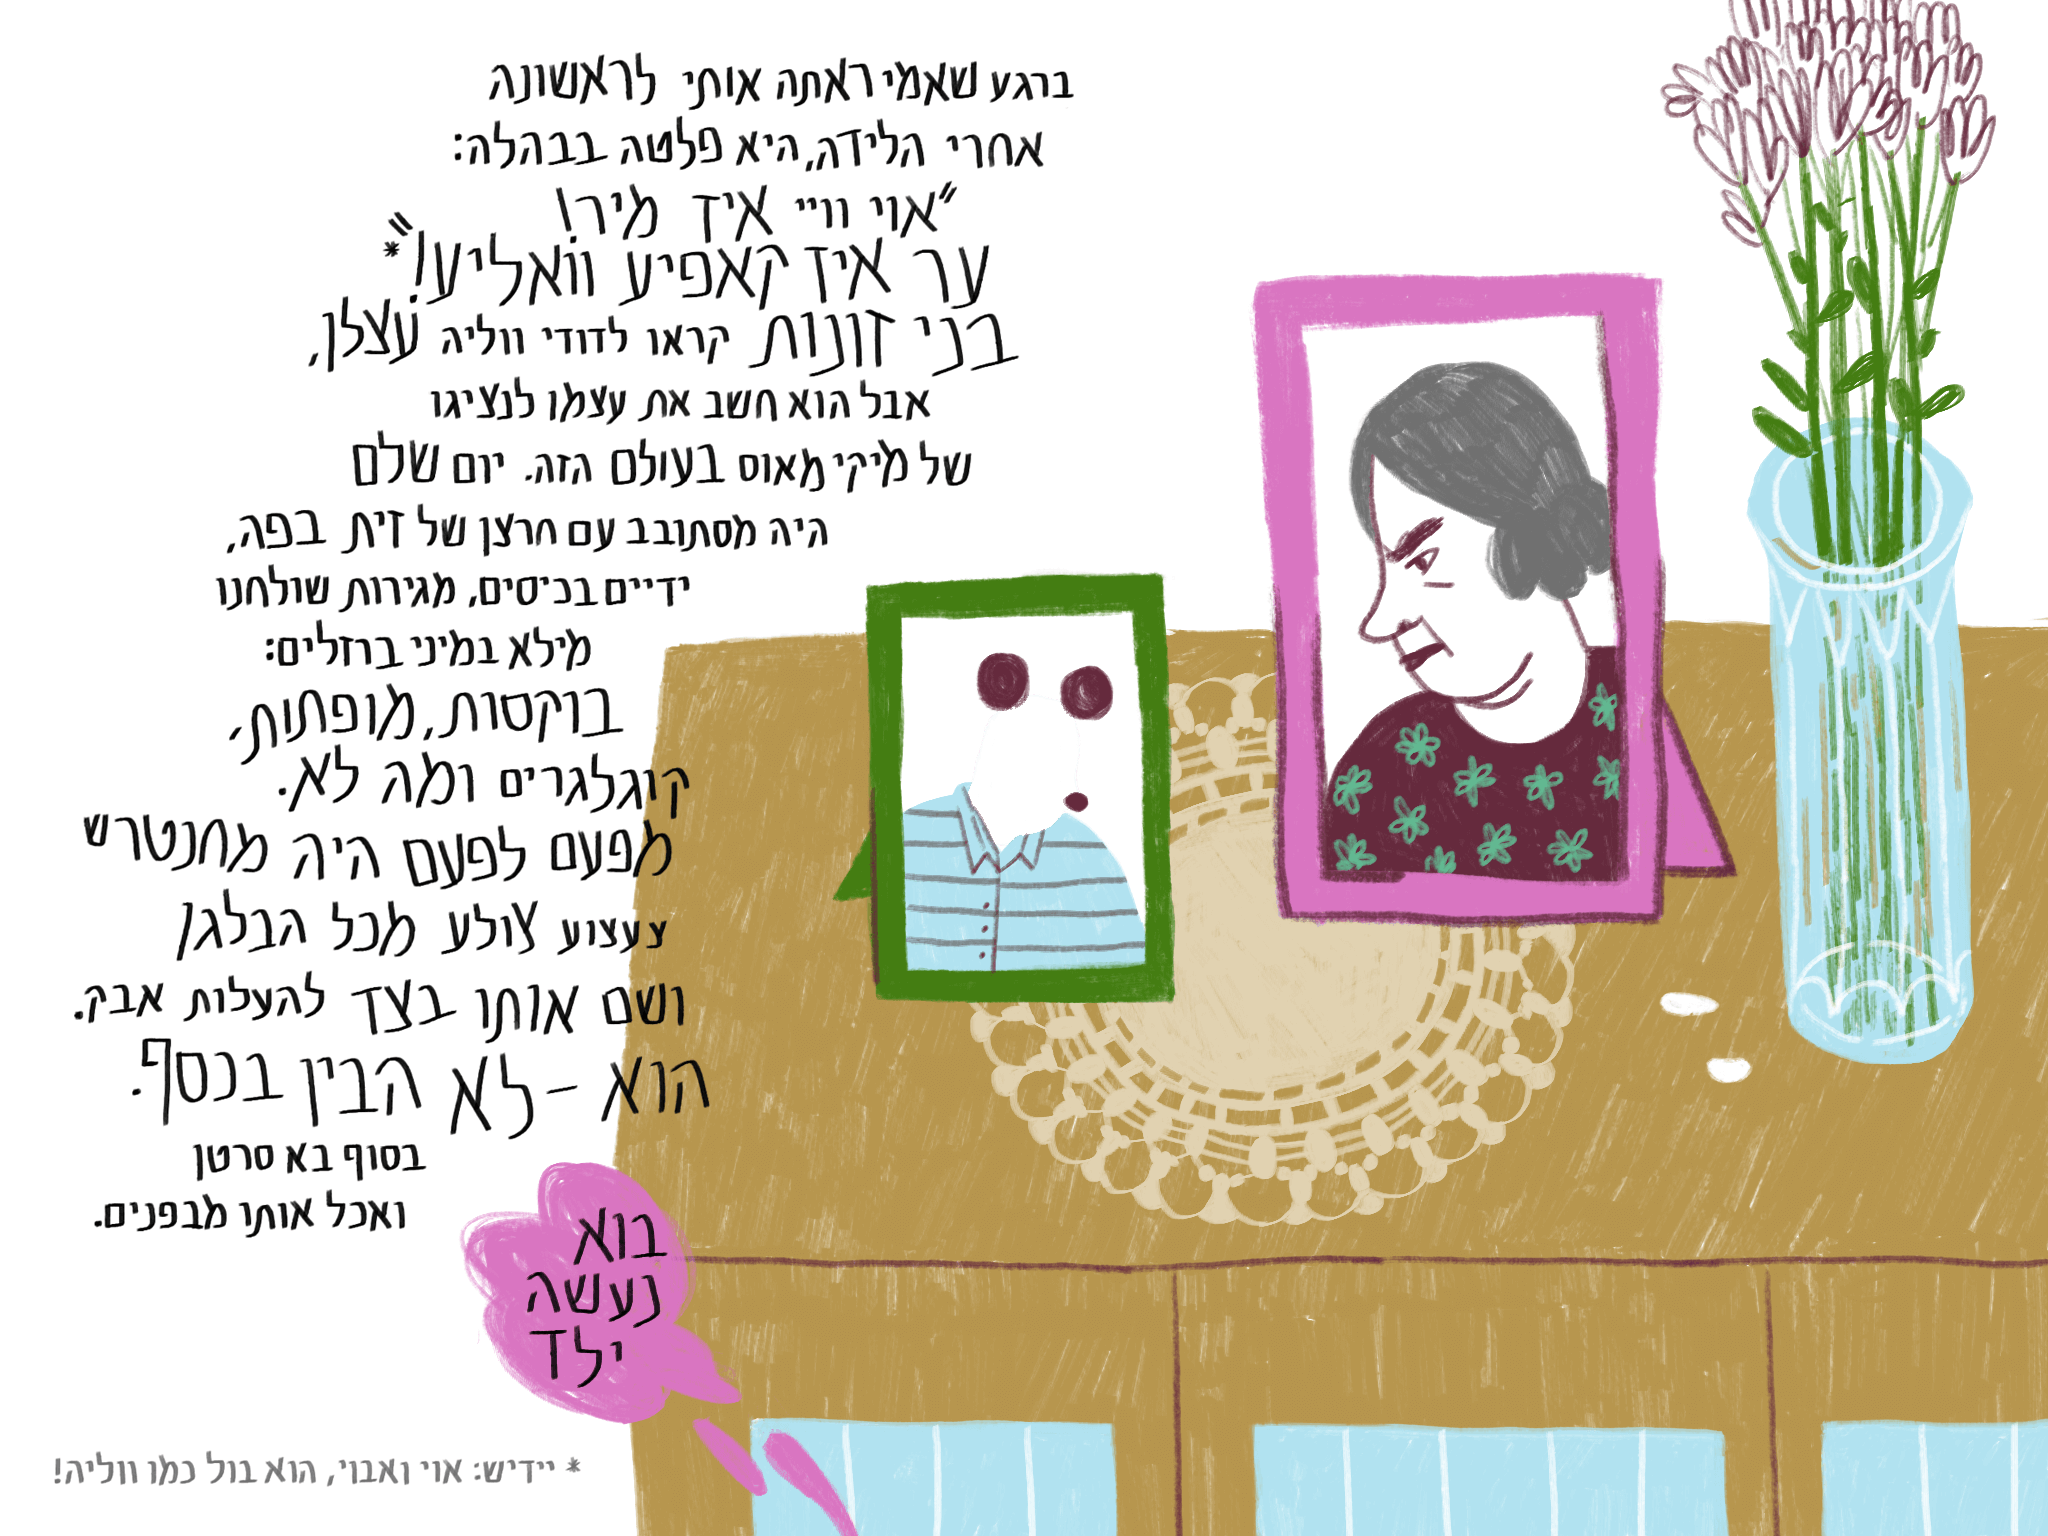 ברגע שאמי ראתה אותי לראשונה
אחרי הלידה, היא פלטה בבהלה:
"אוי וויי איז מיר!
ער איז קאפיע וואליע!"*
בני זונות קראו לדודי ווליה עצלן,
אבל הוא חשב את עצמו לנציגו
של מיקי מאוס בעולם הזה. יום שלם
היה מסתובב עם חרצן של זית בפה,
ידיים בכיסים, מגירות שולחנו
מילא במיני ברזלים:
בוקסות, מופתות,
קוגלגרים ומה לא.
מפעם לפעם היה מחנטרש
צעצוע צולע מכל הבלגן
ושם אותו בצד להעלות אבק.
הוא – לא הבין בכסף.
בסוף בא סרטן
ואכל אותו מבפנים.
בוא
נעשה
ילד
* יידיש: אוי ואבוי, הוא בול כמו ווליה!